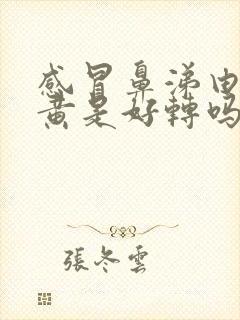 感冒鼻涕由
黄是好轉吗
張冬雲